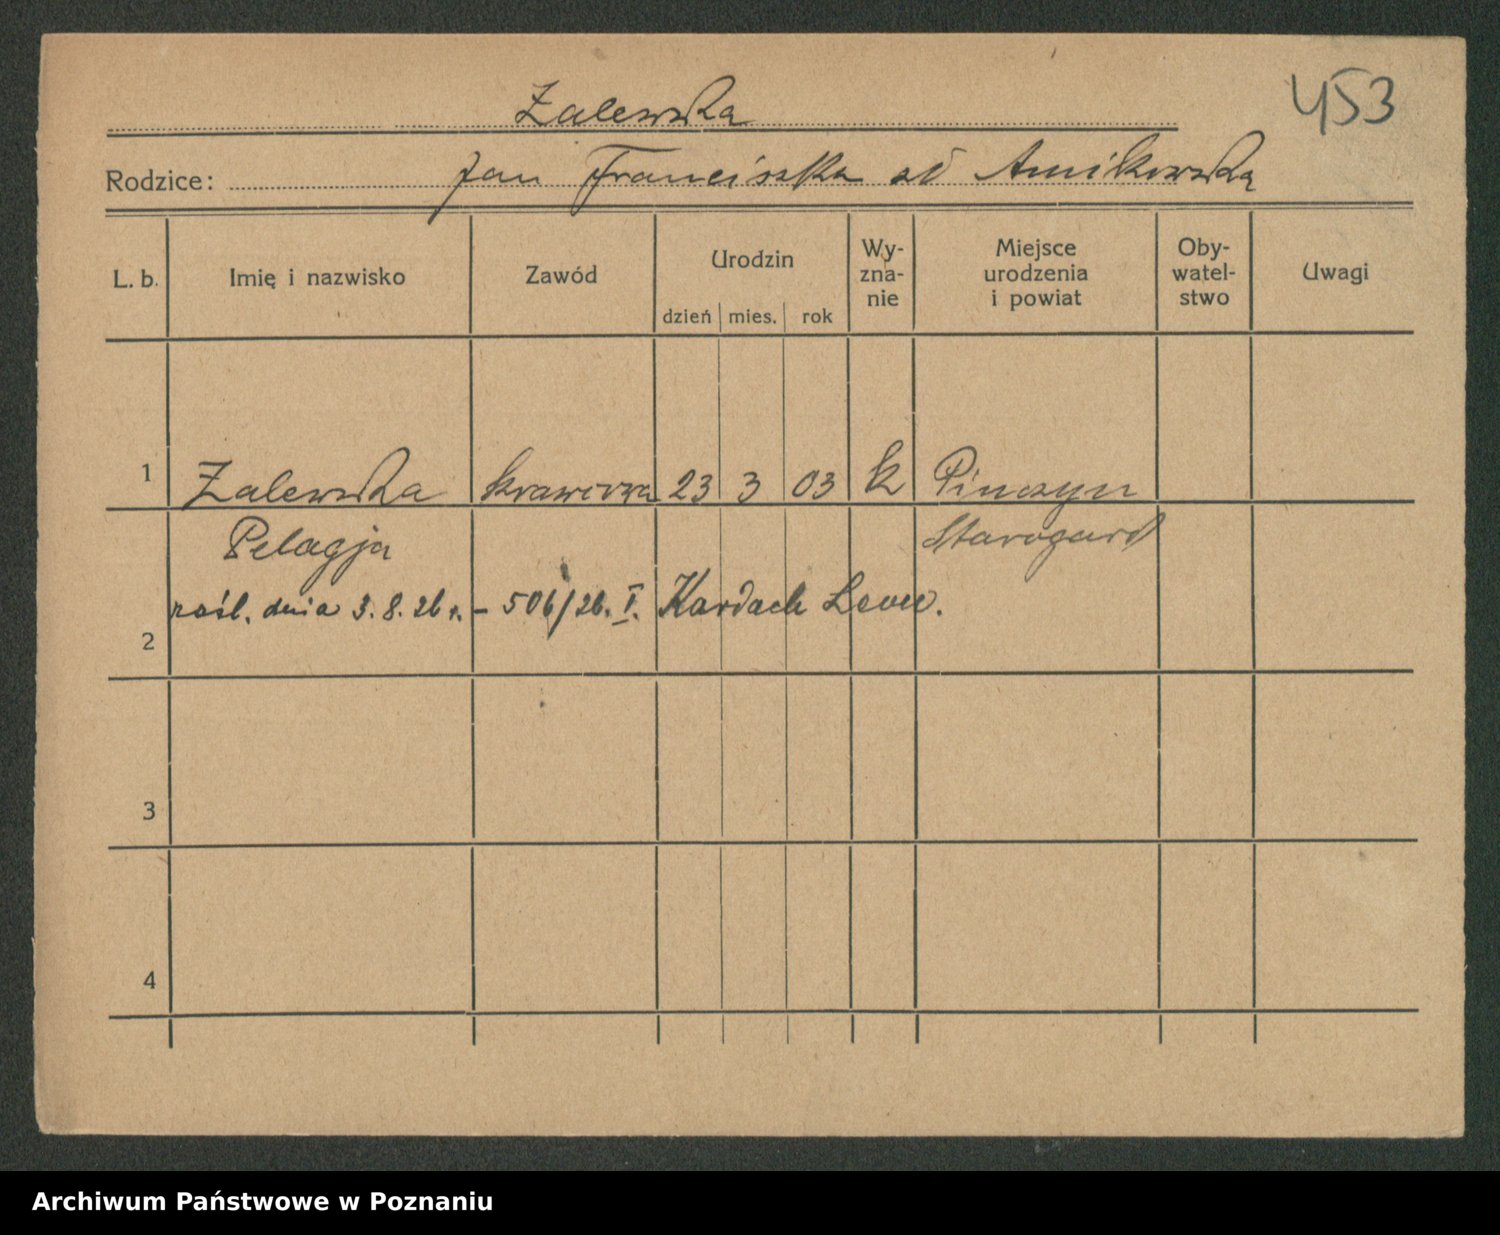 453
Zalewska
Rodzice: Jan Franciszka zd
L. b. Imię i nazwisko Zawód Urodzin dzień mies. rok Wy-zna-nie Miejsce urodzenia i powiat Oby-watel-stwo Uwagi
1 Zalewska krawcowa 23 3 03 k Pinczyn
Pelagja Starogard
zaśl. dnia 3.8.26 r. – 506/26. I. Kardach
2
3
4
Archiwum Państwowe w Poznaniu